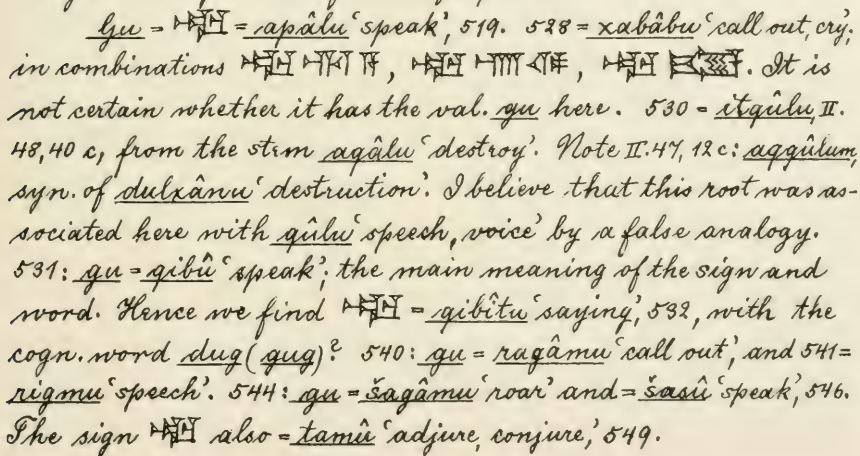 Gu = 𒅗 = apâlu ‘speak’, 519. 528 = xabâbu ‘call out, cry’;
in combinations 𒅗, 𒅗, 𒅗. It is
not certain whether it has the val. gu here. 530 = itqûlu, II.
48,40 c, from the stem aqâlu ‘destroy’. Note II.47, 12 c: aqqûlum,
syn. of dulxânu ‘destruction’. I believe that this root was as-
sociated here with qûlu ‘speech, voice’ by a false analogy.
531: gu = qibû ‘speak’; the main meaning of the sign and
word. Hence we find 𒅗 = qibîtu ‘saying’, 532, with the
cogn. word dug (gug)? 540: gu = ragâmu ‘call out’, and 541 =
rigmu ‘speech’. 544: gu = šagâmu ‘roar’ and = šasû ‘speak’, 546.
The sign 𒅗 also = tamû ‘adjure, conjure,’ 549.